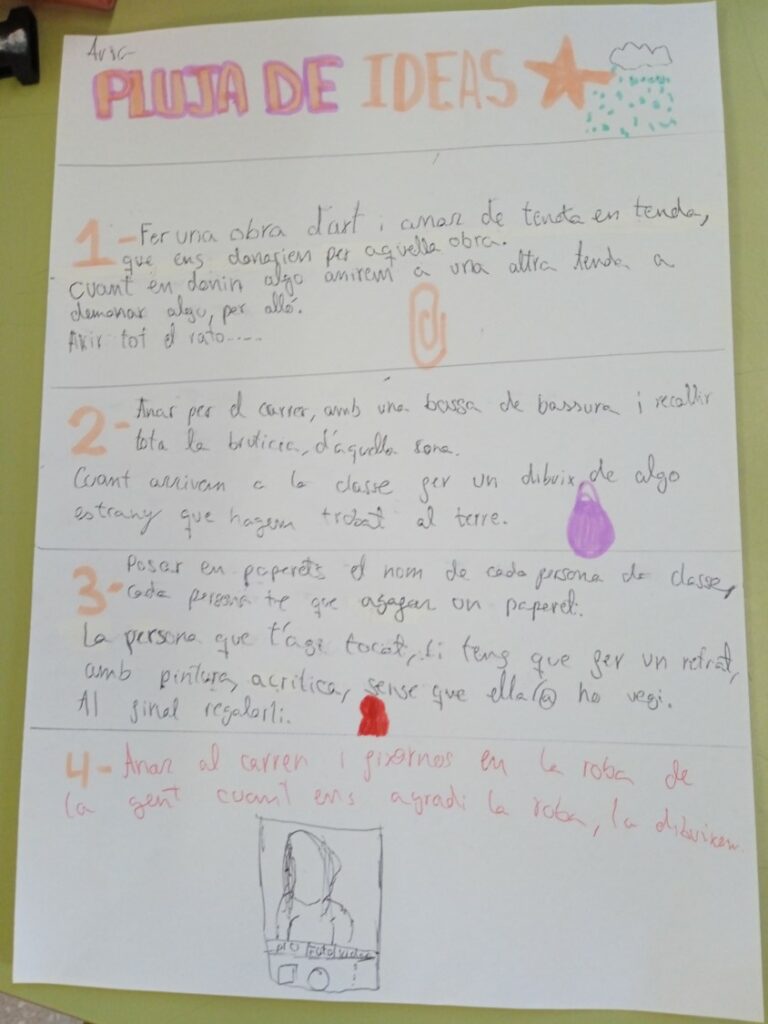 PLUJA DE IDEAS
1- Fer una obra d'art i anar de tenda en tenda,
que ens donarien per aquella obra.
Cuant en donin algo anirem a una altra tenda a
demanar algo, per alló.
Axir tot el rato.....
2- Anar per el carrer, amb una bossa de bassura i recollir
tota la bruticia, d'aquella sona.
Cuant arrivem a la classe fer un dibuix de algo
estrany que hagem trobat al terre.
3- Posar en paperets el nom de cada persona de classe,
cada persona te que agagar un paperet.
La persona que t'agi tocat, li tens que fer un retrat,
amb pintura, acritica, sense que ella/@ ho vegi.
Al final regalarli.
4- Anar al carrer i fixarnos en la roba de
la gent cuant ens agradi la roba, la dibuixem.